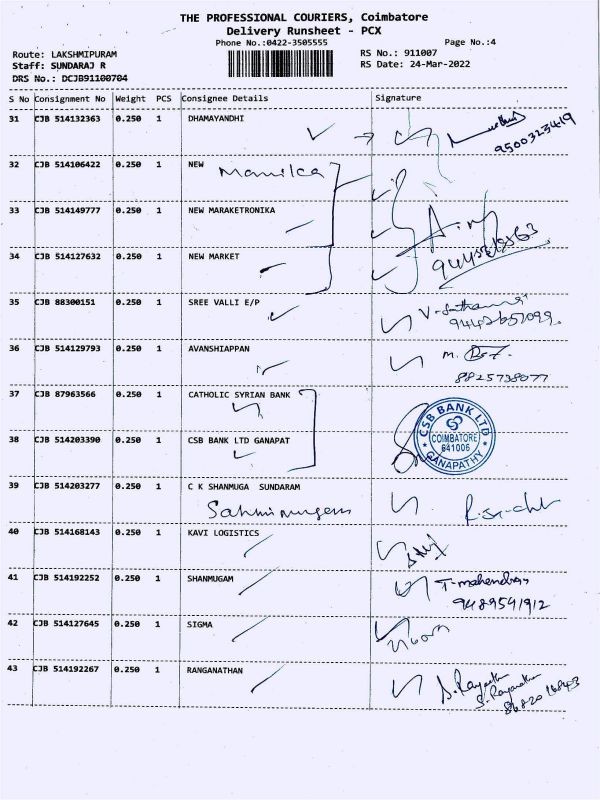 THE PROFESSIONAL COURIERS, Coimbatore
Delivery Runsheet - PCX
Phone No.:0422-3505555 Page No.:4
Route: LAKSHMIPURAM RS No.: 911007
Staff: SUNDARAJ R RS Date: 24-Mar-2022
DRS No.: DCJB91100704
S No Consignment No Weight PCS Consignee Details Signature
31 CJB 514132363 0.250 1 DHAMAYANDHI
9500323419
32 CJB 514106422 0.250 1 NEW
33 CJB 514149777 0.250 1 NEW MARAKETRONIKA
34 CJB 514127632 0.250 1 NEW MARKET
35 CJB 88300151 0.250 1 SREE VALLI E/P
36 CJB 514129793 0.250 1 AVANSHIAPPAN
8825738077
37 CJB 87963566 0.250 1 CATHOLIC SYRIAN BANK
38 CJB 514203390 0.250 1 CSB BANK LTD GANAPAT
CSB BANK LTD
COIMBATORE
641006
GANAPATHY
39 CJB 514203277 0.250 1 C K SHANMUGA SUNDARAM
40 CJB 514168143 0.250 1 KAVI LOGISTICS
41 CJB 514192252 0.250 1 SHANMUGAM T-mahendran
9489541912
42 CJB 514127645 0.250 1 SIGMA
43 CJB 514192267 0.250 1 RANGANATHAN